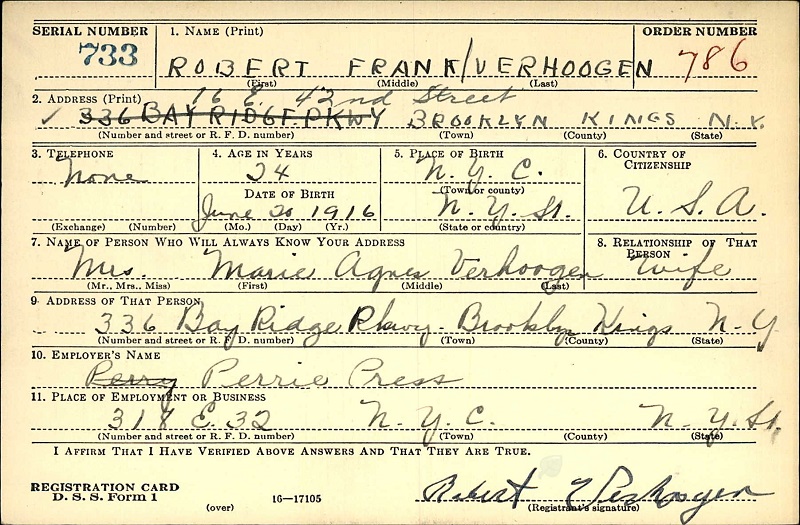 SERIAL NUMBER 1. NAME (Print) ORDER NUMBER
733 ROBERT FRANK/VERHOOGEN 786
(First) (Middle) (Last)
2. ADDRESS (Print) 16 E. 42nd Street
✓ 336 BAY RIDGE PKWY BROOKLYN KINGS N.Y.
(Number and street or R. F. D. number) (Town) (County) (State)
3. TELEPHONE 4. AGE IN YEARS 5. PLACE OF BIRTH 6. COUNTRY OF CITIZENSHIP
None 24 N.Y.C.
DATE OF BIRTH (Town or county)
June 20 1916 N.Y. St. U.S.A.
(Exchange) (Number) (Mo.) (Day) (Yr.) (State or country)
7. NAME OF PERSON WHO WILL ALWAYS KNOW YOUR ADDRESS 8. RELATIONSHIP OF THAT PERSON
Mrs. Marie Agnes Verhoogen Wife
(Mr., Mrs., Miss) (First) (Middle) (Last)
9. ADDRESS OF THAT PERSON
336 Bay Ridge Pkwy. Brooklyn Kings N.Y.
(Number and street or R. F. D. number) (Town) (County) (State)
10. EMPLOYER'S NAME
Perry Perrie Press
11. PLACE OF EMPLOYMENT OR BUSINESS
318 E. 32 N.Y.C. N.Y. St.
(Number and street or R. F. D. number) (Town) (County) (State)
I AFFIRM THAT I HAVE VERIFIED ABOVE ANSWERS AND THAT THEY ARE TRUE.
REGISTRATION CARD
D. S. S. Form 1 (over) 16-17105 Robert Verhoogen
(Registrant's signature)